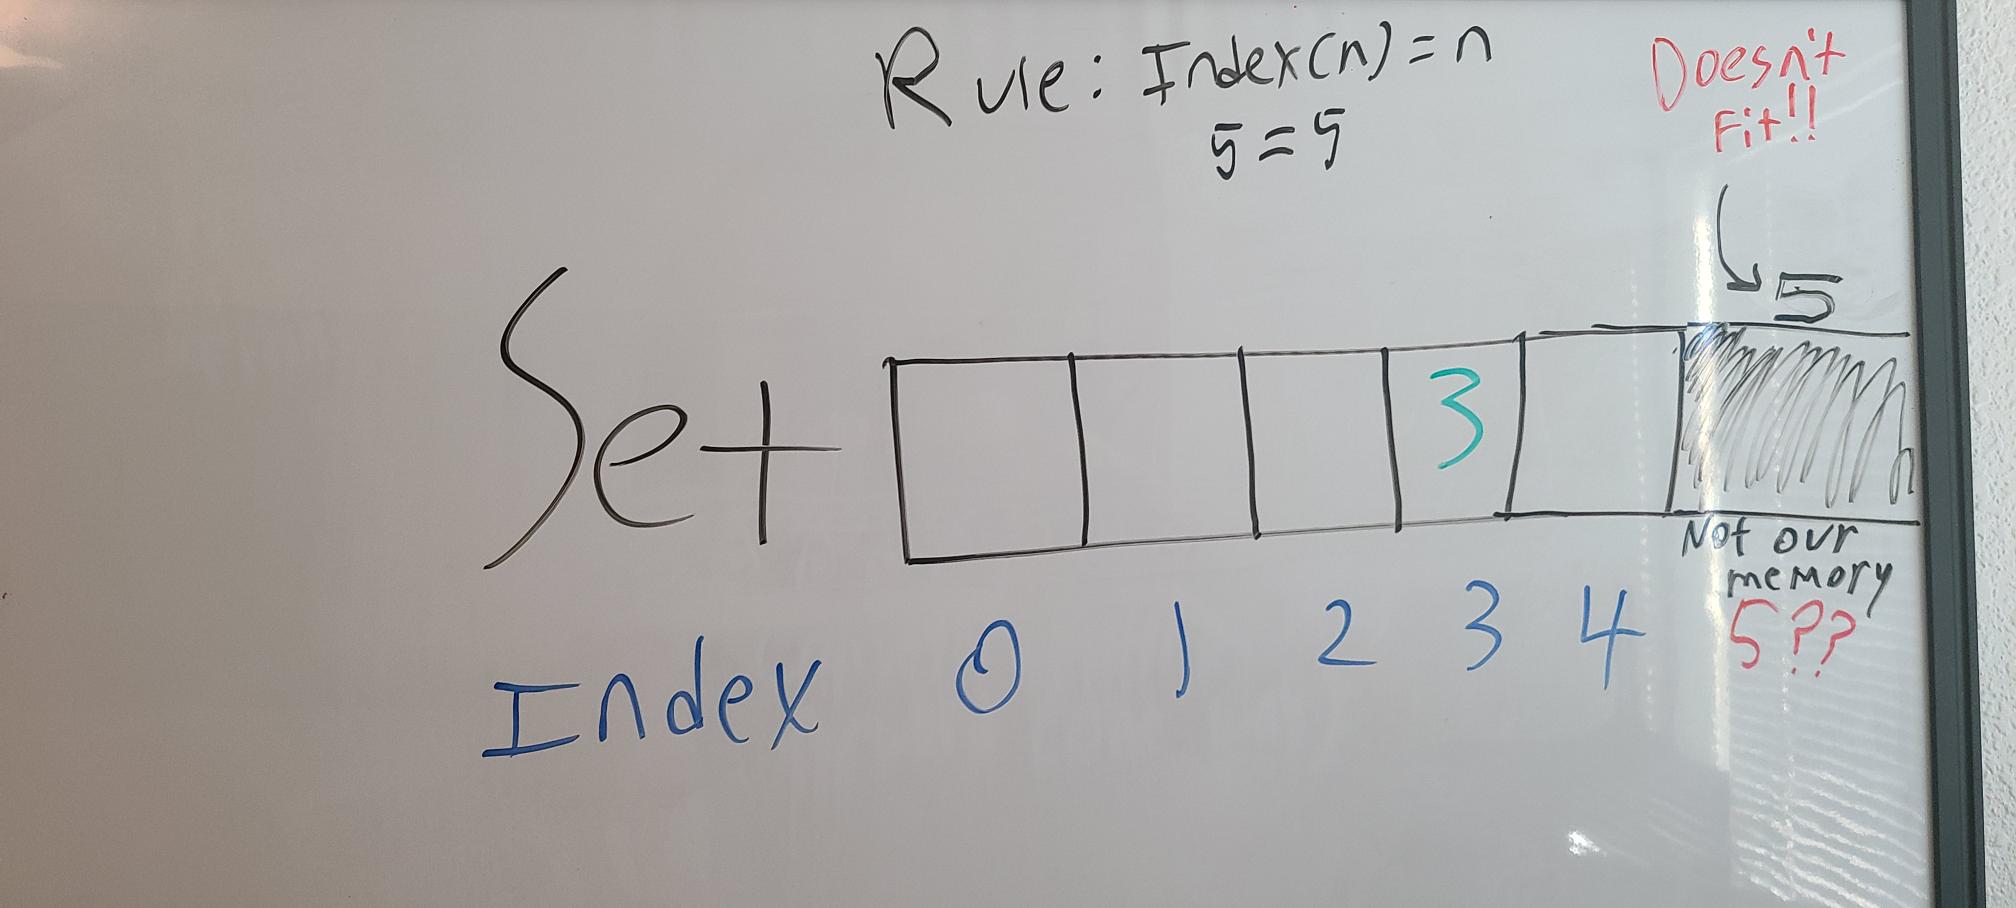 Rule: Index(n) = n
5 = 5
Doesn't
Fit!!
5
Set
3
Not our
memory
Index 0 1 2 3 4 5??